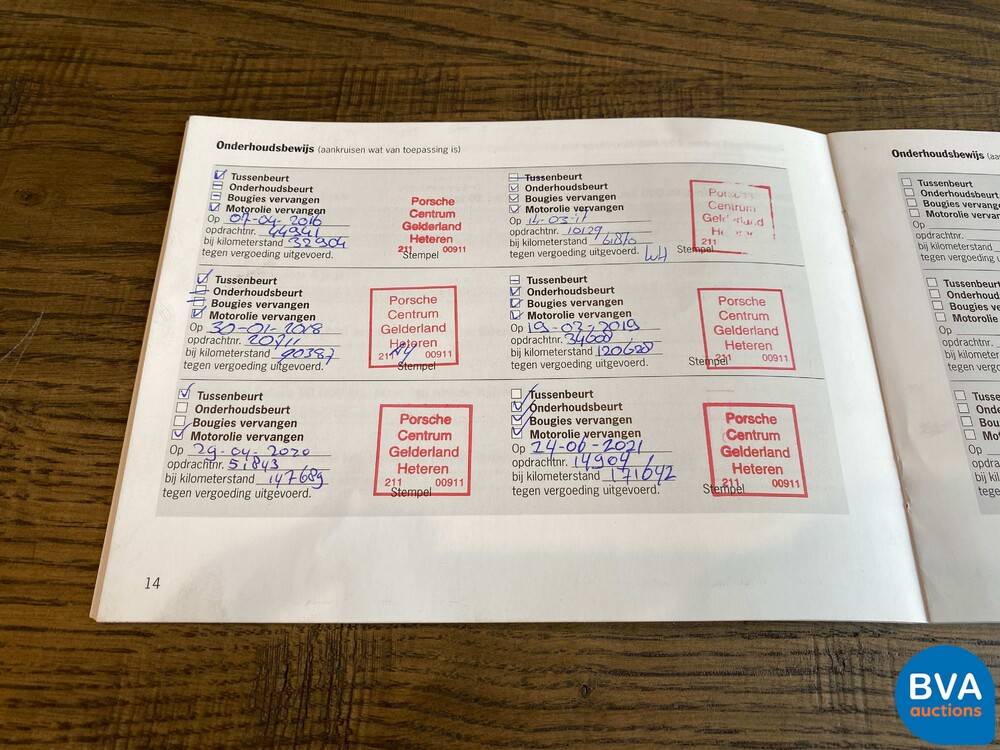 Onderhoudsbewijs (aankruisen wat van toepassing is)
Tussenbeurt
Onderhoudsbeurt
Bougies vervangen
Motorolie vervangen
Op 07-04-2016
opdrachtnr. 44941
bij kilometerstand 32904
tegen vergoeding uitgevoerd.
Porsche
Centrum
Gelderland
Heteren
211 00911
Stempel
Tussenbeurt
Onderhoudsbeurt
Bougies vervangen
Motorolie vervangen
Op 14-03-17
opdrachtnr. 10129
bij kilometerstand 61870
tegen vergoeding uitgevoerd.
Centrum
211
Stempel
Tussenbeurt
Onderhoudsbeurt
Bougies vervangen
Motorolie vervangen
Op 30-01-2018
opdrachtnr. 20711
bij kilometerstand 90387
tegen vergoeding uitgevoerd.
Porsche
Centrum
Gelderland
Heteren
211 00911
Stempel
Tussenbeurt
Onderhoudsbeurt
Bougies vervangen
Motorolie vervangen
Op 19-03-2019
opdrachtnr. 34608
bij kilometerstand 120628
tegen vergoeding uitgevoerd.
Porsche
Centrum
Gelderland
Heteren
211 00911
Stempel
Tussenbeurt
Onderhoudsbeurt
Bougies vervangen
Motorolie vervangen
Op 29-04-2020
opdrachtnr. 51843
bij kilometerstand 147689
tegen vergoeding uitgevoerd.
Porsche
Centrum
Gelderland
Heteren
211 00911
Stempel
Tussenbeurt
Onderhoudsbeurt
Bougies vervangen
Motorolie vervangen
Op 24-06-2021
opdrachtnr. 14904
bij kilometerstand 171642
tegen vergoeding uitgevoerd.
Porsche
Centrum
Gelderland
Heteren
211 00911
Stempel
14
Onderhoudsbewijs
Tussenbeurt
Onderhoudsbeurt
Bougies vervangen
Motorolie vervangen
Op
opdrachtnr.
bij kilometerstand
tegen vergoeding
Tussenbeurt
Op
BVA
auctions